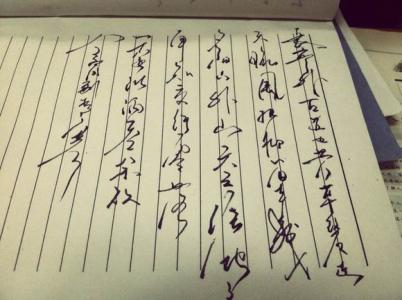 长亭外古道边芳草碧连天
晚风拂柳笛声残
夕阳山外山天之涯地之
角知交半零落
一壶浊酒尽余欢
今宵别梦寒